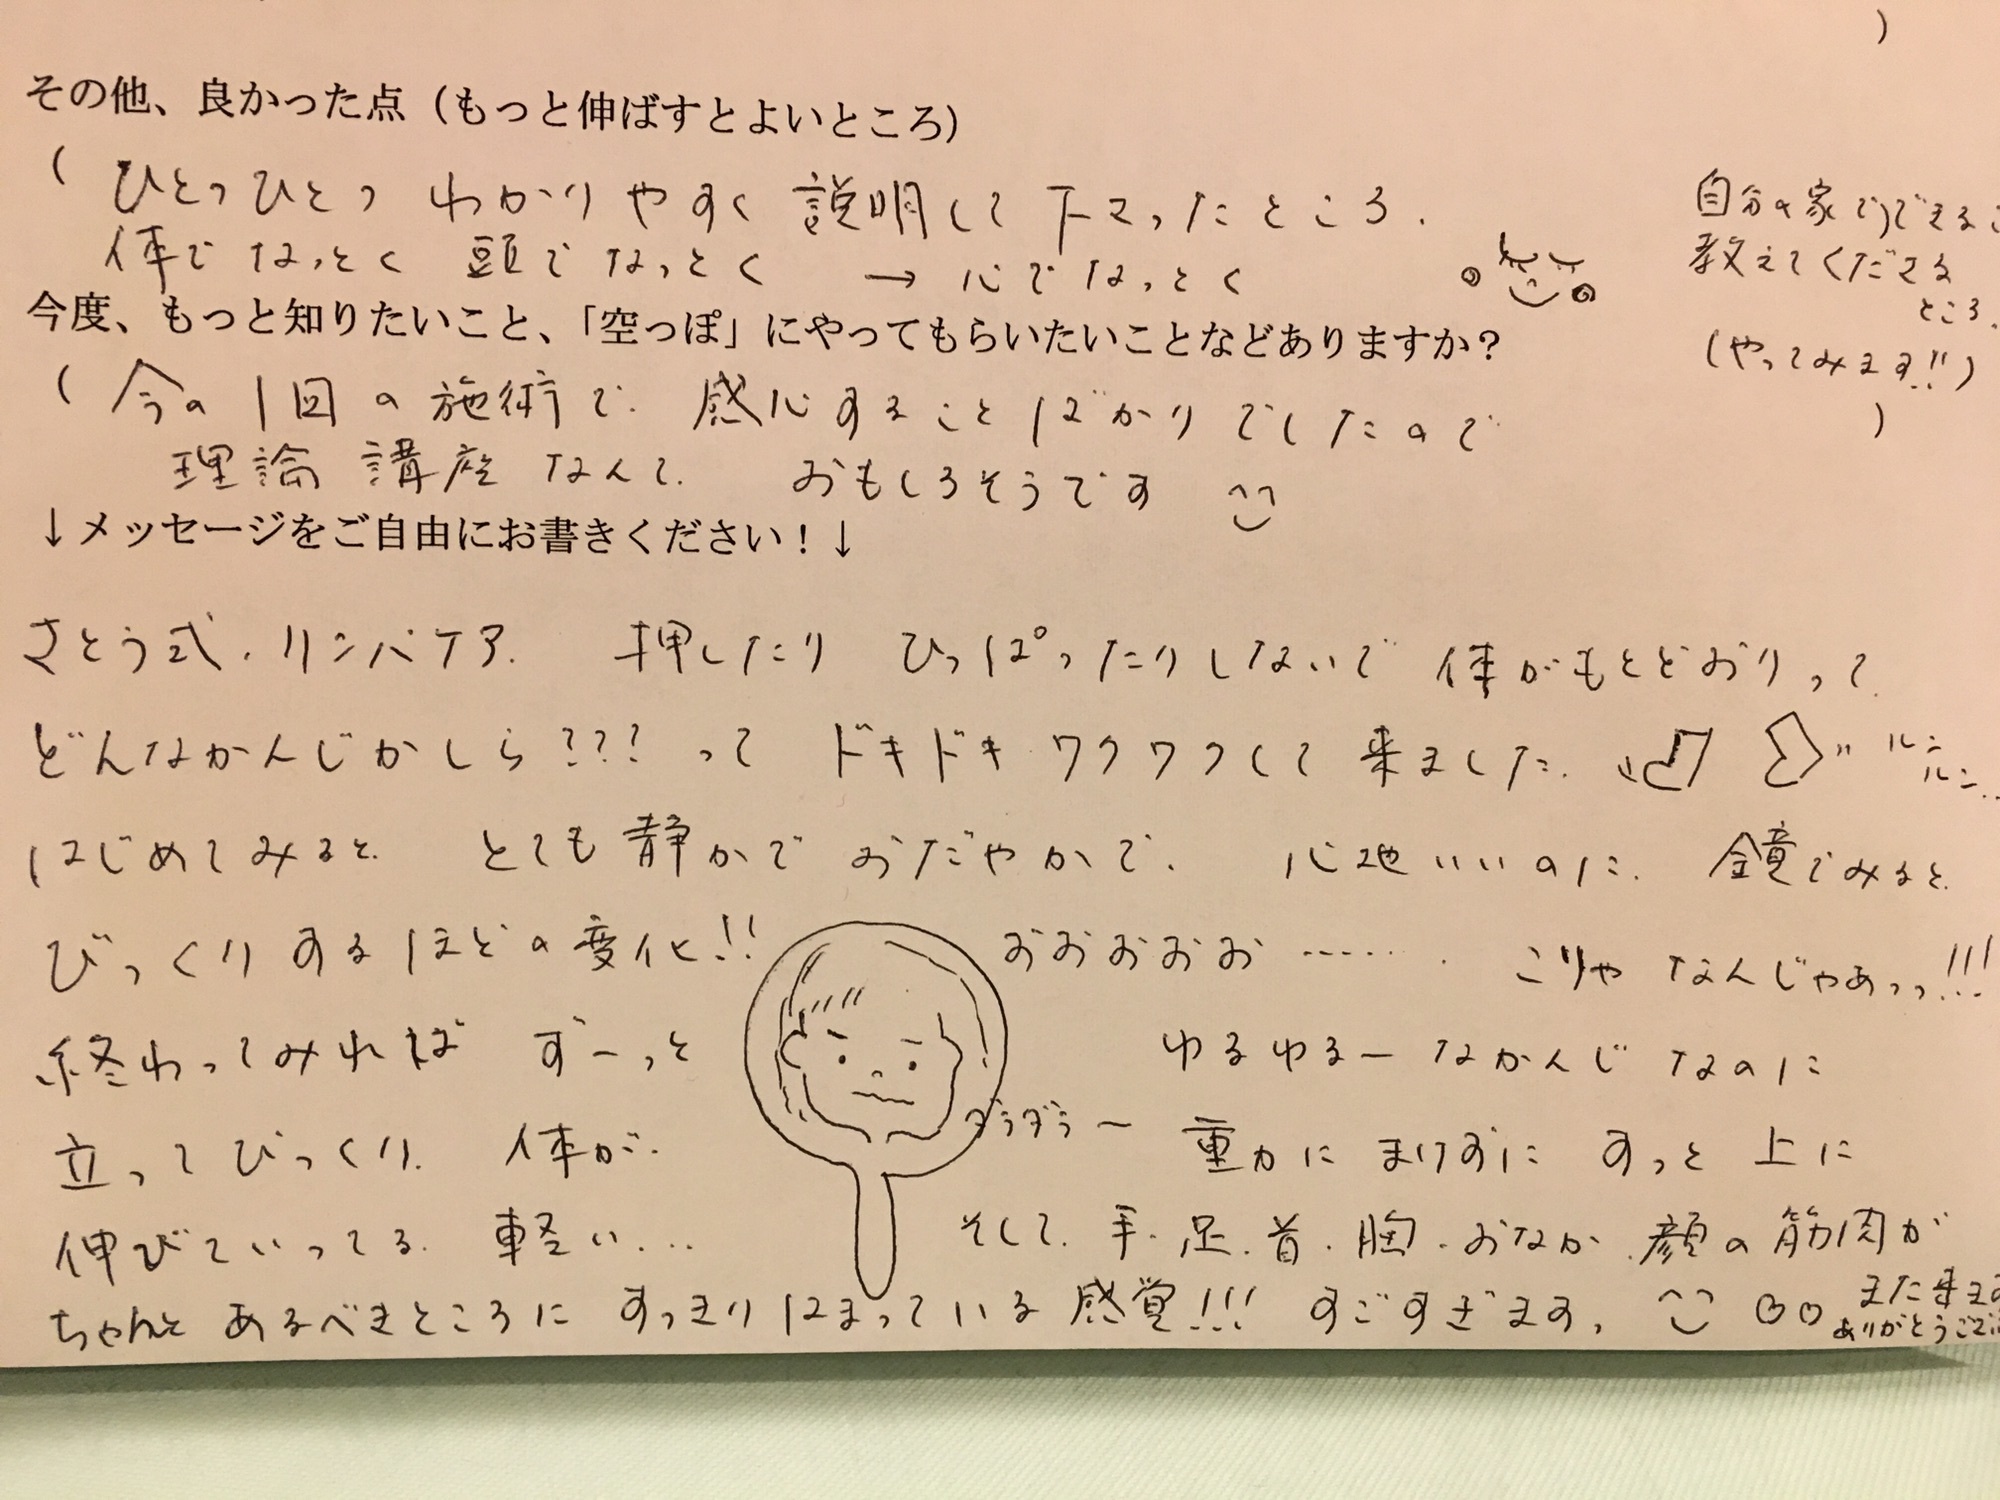 その他、良かった点（もっと伸ばすとよいところ）
（ひとつひとつ わかりやすく 説明して下さったところ.
体でなっとく 頭でなっとく → 心でなっとく
自分の家で)できるこ
教えてくださる
ところ.
(やってみます!!)
）
今度、もっと知りたいこと、「空っぽ」にやってもらいたいことなどありますか？
（今の1回の施術で. 感心することばかりでしたので
理論講座なんて. おもしろそうです
）
↓メッセージをご自由にお書きください！↓
さとう式.リンパケア. 押したり ひっぱったりしないで 体がもとどおりって.
どんなかんじかしら??? って ドキドキ ワクワクして 来ました. ルンルン..
はじめてみると. とても静かで おだやかで. 心地いいのに. 鏡でみると.
びっくりするほどの変化!! おおおおお……. こりゃ なんじゃあっっ!!!
終わってみれば ずーっと ゆるゆるーなかんじ なのに
立ってびっくり. 体が. ダラダラ〜 重力に まけずに すっと 上に
伸びていってる. 軽い... そして. 手.足.首.胸.おなか.顔の筋肉が
ちゃんと あるべきところに すっきりはまっている 感覚!!! すごすぎます.
また来ます
ありがとうござい